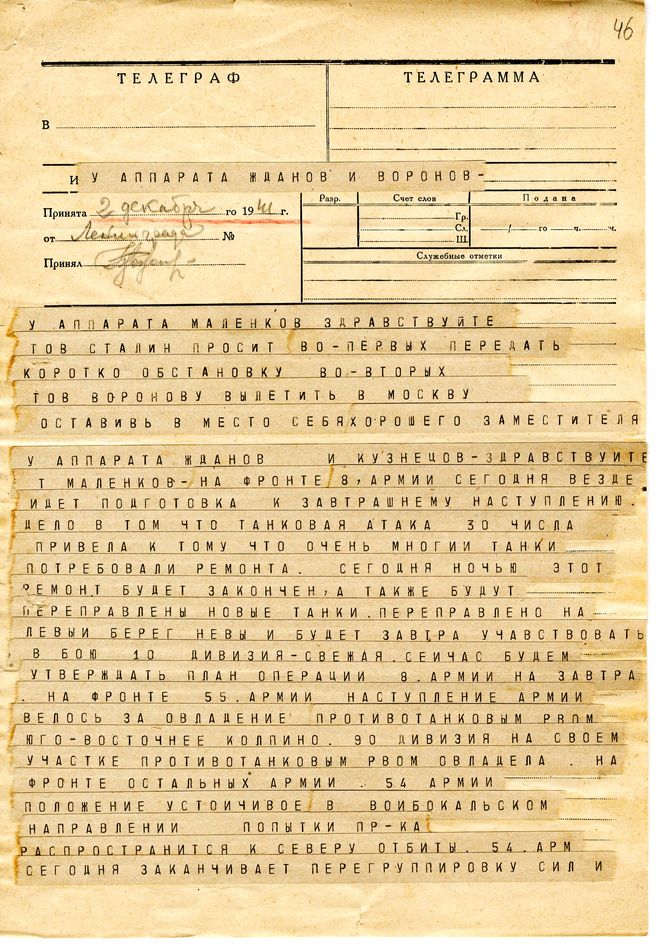 46
ТЕЛЕГРАФ
ТЕЛЕГРАММА
В
И У АППАРАТА ЖДАНОВ И ВОРОНОВ-
Принята 2 декабря го 1941 г.
от Ленинграда №
Принял
Разр.
Счет слов
Подана
Гр.
Сл.
Ш.
/ го ч. ч.
Служебные отметки
У АППАРАТА МАЛЕНКОВ ЗДРАВСТВУЙТЕ
ТОВ СТАЛИН ПРОСИТ ВО-ПЕРВЫХ ПЕРЕДАТЬ
КОРОТКО ОБСТАНОВКУ ВО-ВТОРЫХ
ТОВ ВОРОНОВУ ВЫЛЕТИТЬ В МОСКВУ
ОСТАВИВЬ В МЕСТО СЕБЯХОРОШЕГО ЗАМЕСТИТЕЛЯ
У АППАРАТА ЖДАНОВ И КУЗНЕЦОВ-ЗДРАВСТВУЙТЕ
Т МАЛЕНКОВ-НА ФРОНТЕ 8,АРМИИ СЕГОДНЯ ВЕЗДЕ
ИДЕТ ПОДГОТОВКА К ЗАВТРАШНЕМУ НАСТУПЛЕНИЮ.
ДЕЛО В ТОМ ЧТО ТАНКОВАЯ АТАКА 30 ЧИСЛА
ПРИВЕЛА К ТОМУ ЧТО ОЧЕНЬ МНОГИИ ТАНКИ
ПОТРЕБОВАЛИ РЕМОНТА. СЕГОДНЯ НОЧЬЮ ЭТОТ
РЕМОНТ БУДЕТ ЗАКОНЧЕН,А ТАКЖЕ БУДУТ
ПЕРЕПРАВЛЕНЫ НОВЫЕ ТАНКИ.ПЕРЕПРАВЛЕНО НА
ЛЕВЫИ БЕРЕГ НЕВЫ И БУДЕТ ЗАВТРА УЧАВСТВОВАТЬ
В БОЮ 10 ДИВИЗИЯ-СВЕЖАЯ.СЕИЧАС БУДЕМ
УТВЕРЖДАТЬ ПЛАН ОПЕРАЦИИ 8.АРМИИ НА ЗАВТРА
. НА ФРОНТЕ 55.АРМИИ НАСТУПЛЕНИЕ АРМИИ
ВЕЛОСЬ ЗА ОВЛАДЕНИЕ ПРОТИВОТАНКОВЫМ РВОМ
ЮГО-ВОСТОЧНЕЕ КОЛПИНО. 90 ДИВИЗИЯ НА СВОЕМ
УЧАСТКЕ ПРОТИВОТАНКОВЫМ РВОМ ОВЛАДЕЛА . НА
ФРОНТЕ ОСТАЛЬНЫХ АРМИИ . 54 АРМИИ
ПОЛОЖЕНИЕ УСТОИЧИВОЕ В ВОИБОКАЛЬСКОМ
НАПРАВЛЕНИИ ПОПЫТКИ ПР-КА
РАСПРОСТРАНИТСЯ К СЕВЕРУ ОТБИТЫ. 54.АРМ
СЕГОДНЯ ЗАКАНЧИВАЕТ ПЕРЕГРУППИРОВКУ СИЛ И